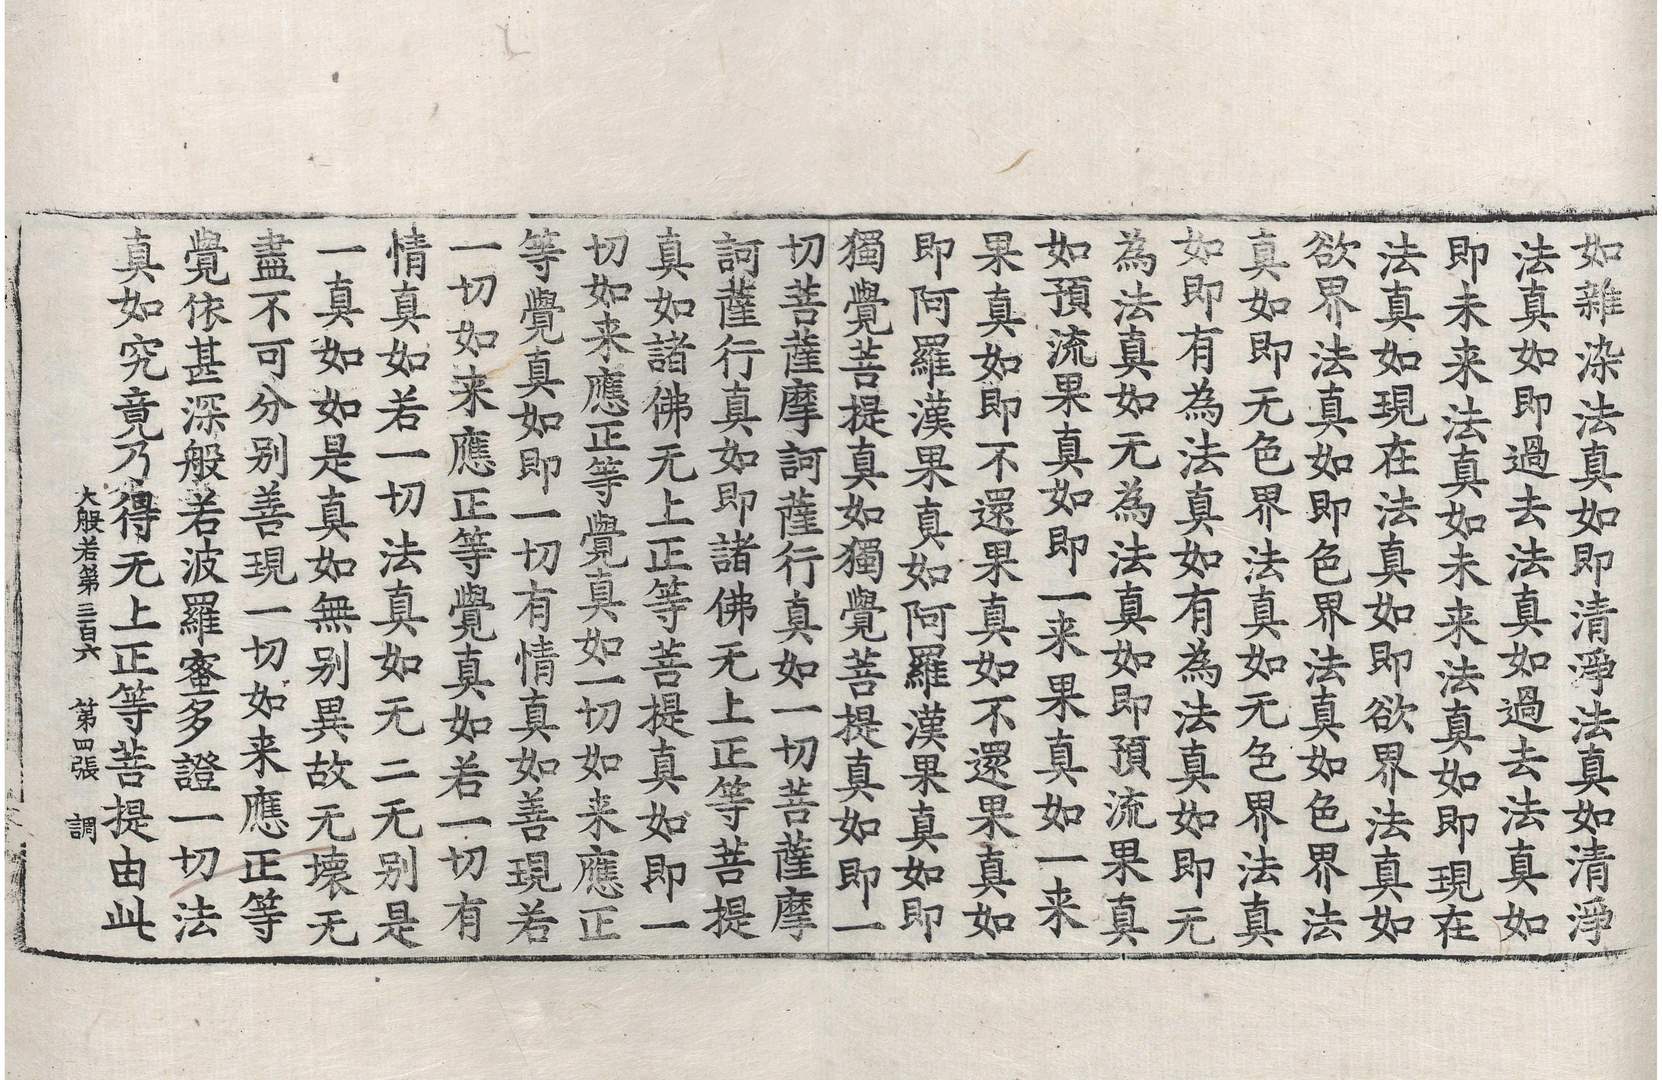 如雜染法真如即清淨法真如清淨
法真如即過去法真如過去法真如
即未来法真如未来法真如即現在
法真如現在法真如即欲界法真如
欲界法真如即色界法真如色界法
真如即无色界法真如无色界法真
如即有為法真如有為法真如即无
為法真如无為法真如即預流果真
如預流果真如即一来果真如一来
果真如即不還果真如不還果真如
即阿羅漢果真如阿羅漢果真如即
獨覺菩提真如獨覺菩提真如即一
切菩薩摩訶薩行真如一切菩薩摩
訶薩行真如即諸佛无上正等菩提
真如諸佛无上正等菩提真如即一
切如来應正等覺真如一切如来應正
等覺真如即一切有情真如善現若
一切如来應正等覺真如若一切有
情真如若一切法真如无二无别是
一真如如是真如無别異故无壞无
盡不可分别善現一切如来應正等
覺依甚深般若波羅蜜多證一切法
真如究竟乃得无上正等菩提由此
大般若第三百六 第四張 調